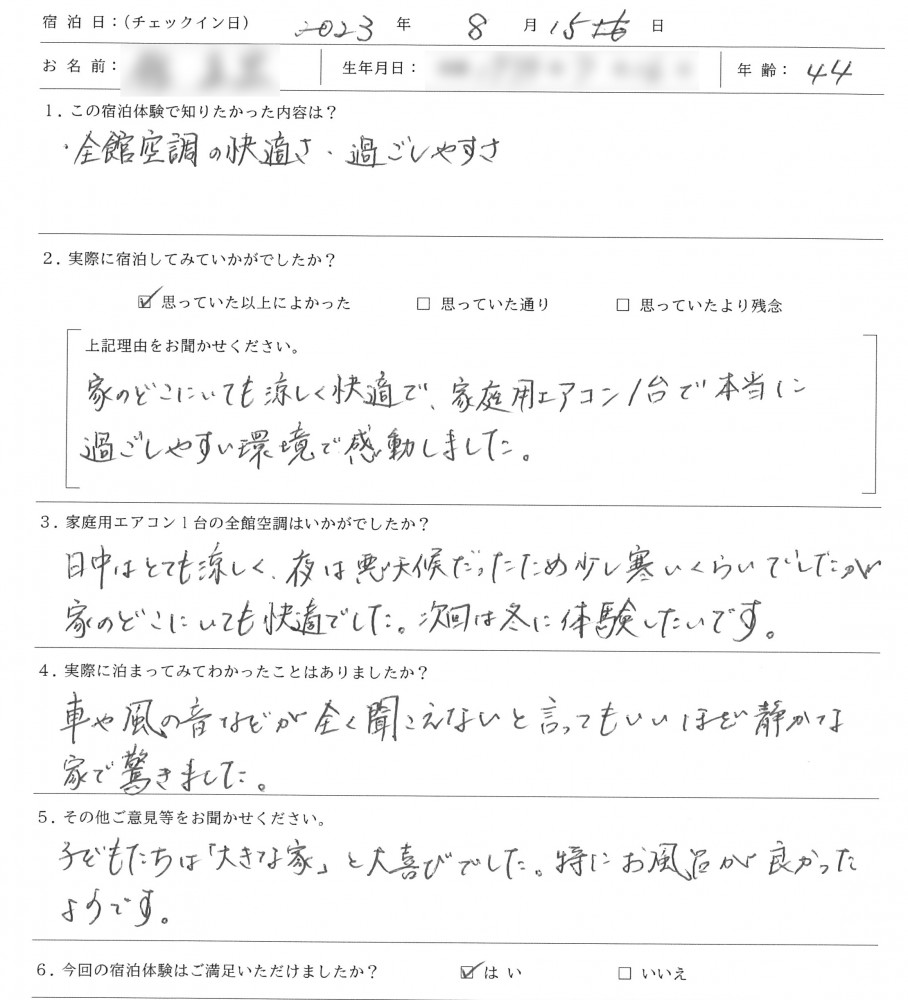 宿 泊 日：（チェックイン日） 2023 年 8 月 15 日
お 名 前： 生年月日： 年 齢： 44
1．この宿泊体験で知りたかった内容は？
・全館空調の快適さ・過ごしやすさ
2．実際に宿泊してみていかがでしたか？
☑ 思っていた以上によかった □ 思っていた通り □ 思っていたより残念
上記理由をお聞かせください。
家のどこにいても涼しく快適で、家庭用エアコン1台で本当に
過ごしやすい環境で感動しました。
3．家庭用エアコン1台の全館空調はいかがでしたか？
日中はとても涼しく、夜は悪天候だったため少し寒いくらいでしたが
家のどこにいても快適でした。次回は冬に体験したいです。
4．実際に泊まってみてわかったことはありましたか？
車や風の音などが全く聞こえないと言ってもいいほど静かな
家で驚きました。
5．その他ご意見等をお聞かせください。
子どもたちは「大きな家」と大喜びでした。特にお風呂が良かった
ようです。
6．今回の宿泊体験はご満足いただけましたか？ ☑ はい □ いいえ